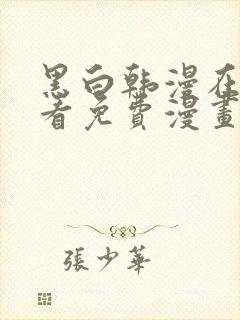 黑白韩漫在
看免费漫畫
張少華